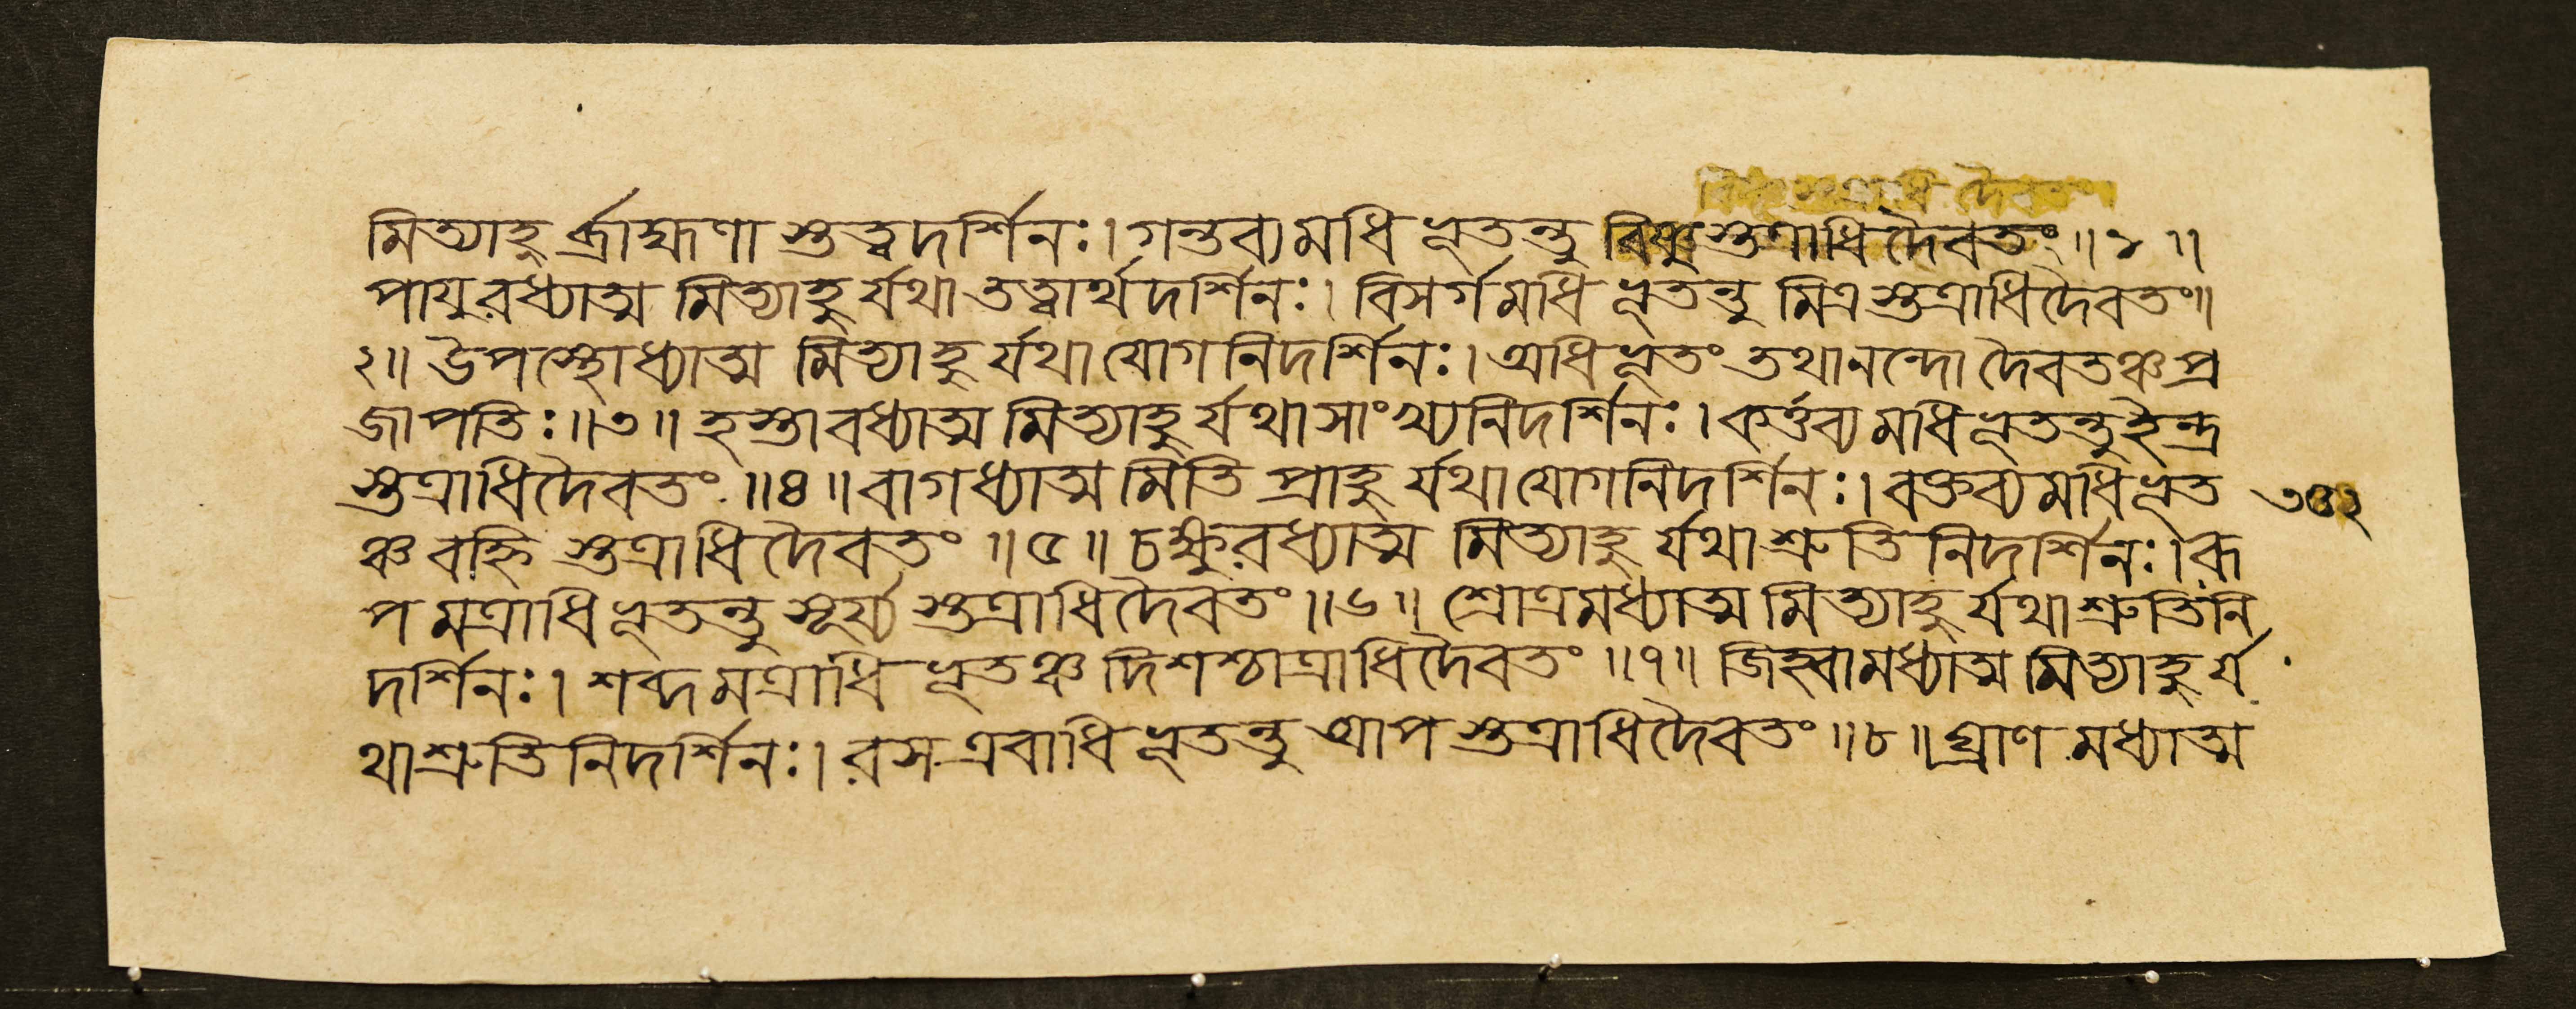 মিত্যাহু র্ব্রাহ্মণা স্তত্ত্বদর্শিনঃ। গন্তব্য মধি ভূতন্তু বিষ্ণুস্তত্রাধি দৈবতং॥ ১ ॥
পায়ুরধ্যাত্ম মিত্যাহুর্যথা তত্ত্বার্থদর্শিনঃ। বিসর্গমধি ভূতন্তু মিত্রস্তত্রাধিদৈবতং॥
২॥ উপস্থোধ্যাত্ম মিত্যাহুর্যথা যোগনিদর্শিনঃ। অধিভূতং তথানন্দো দৈবতঞ্চপ্র
জাপতিঃ॥৩॥ হস্তাবধ্যাত্ম মিত্যাহুর্যথাসাংখ্যনিদর্শিনঃ। কর্ত্তব্য মধিভূতন্তুইন্দ্র
স্তত্রাধিদৈবতং॥৪॥ বাগধ্যাত্ম মিতি প্রাহুর্যথাযোগনিদর্শিনঃ। বক্তব্য মধিভূত
ঞ্চ বহ্নি স্তত্রাধিদৈবতং ॥৫॥ চক্ষুরধ্যাত্ম মিত্যাহুর্যথা শ্রুতি নিদর্শিনঃ। রূ
প মত্রাধি ভূতন্তু সূর্য্য স্তত্রাধিদৈবতং॥৬॥ শ্রোত্রমধ্যাত্ম মিত্যাহুর্যথা শ্রুতিনি
দর্শিনঃ। শব্দমত্রাধি ভূতঞ্চ দিশশ্চাত্রাধিদৈবতং॥৭॥ জিহ্বামধ্যাত্ম মিত্যাহুর্য
থাশ্রুতিনিদর্শিনঃ। রস এবাধি ভূতন্তু আপ স্তত্রাধিদৈবতং॥৮॥ ঘ্রাণ মধ্যাত্ম